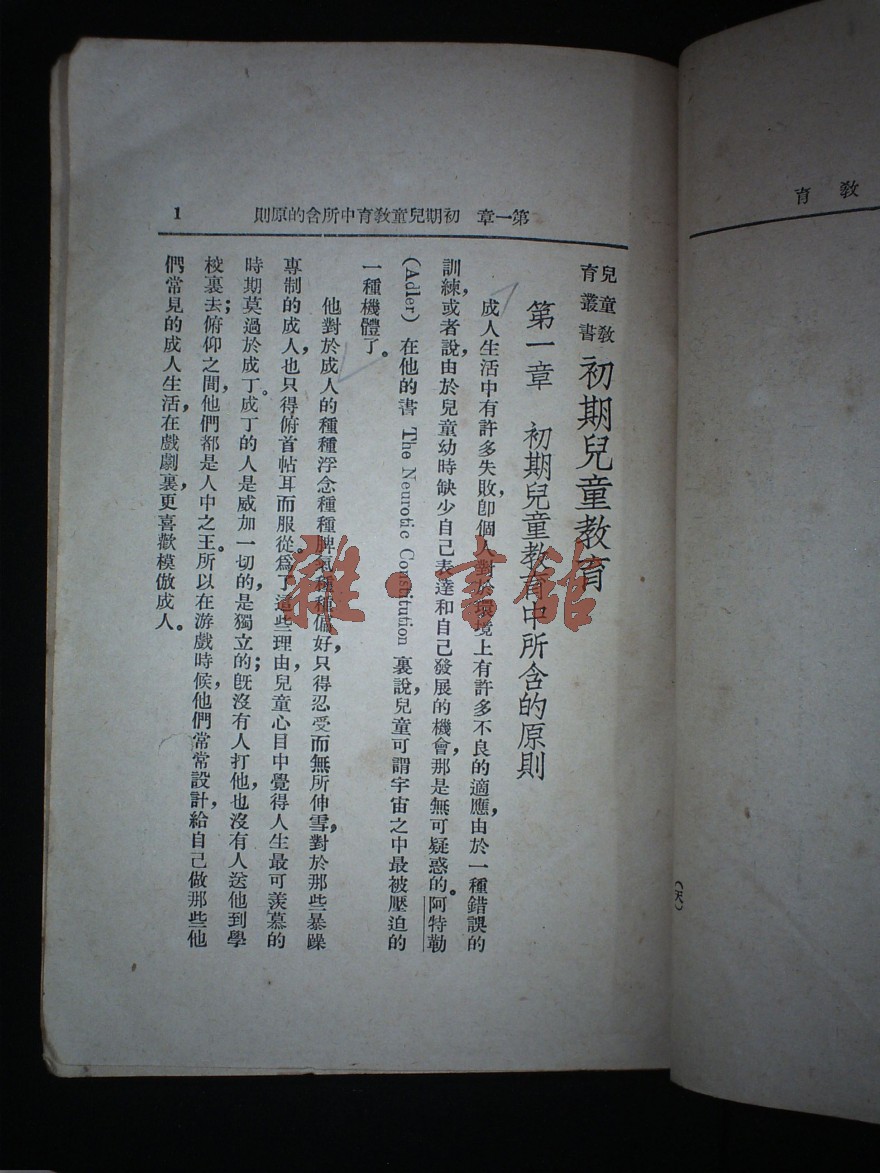 第一章 初期兒童教育中所含的原則 1
兒童教
育叢書
初期兒童教育
第一章 初期兒童教育中所含的原則
成人生活中有許多失敗，卽個人對於環境上有許多不良的適應，由於一種錯誤的
訓練，或者說由於兒童幼時缺少自己表達和自己發展的機會，那是無可疑惑的。阿特勒
(Adler) 在他的書 The Neurotic Constitution 裏說，兒童可謂宇宙之中最被壓迫的
一種機體了。
他對於成人的種種浮念種種脾氣種種偏好只得忍受而無所伸雪，對於那些暴躁
專制的成人，也只得俯首帖耳而服從。爲了這些理由，兒童心目中覺得人生最可羨慕的
時期莫過於成丁。成丁的人是威加一切的，是獨立的；旣沒有人打他，也沒有人送他到學
校裏去；俯仰之間，他們都是人中之王。所以在游戲時候，他們常常設計給自己做那些他
們常見的成人生活，在戲劇裏，更喜歡模倣成人。
教育
雜·書館